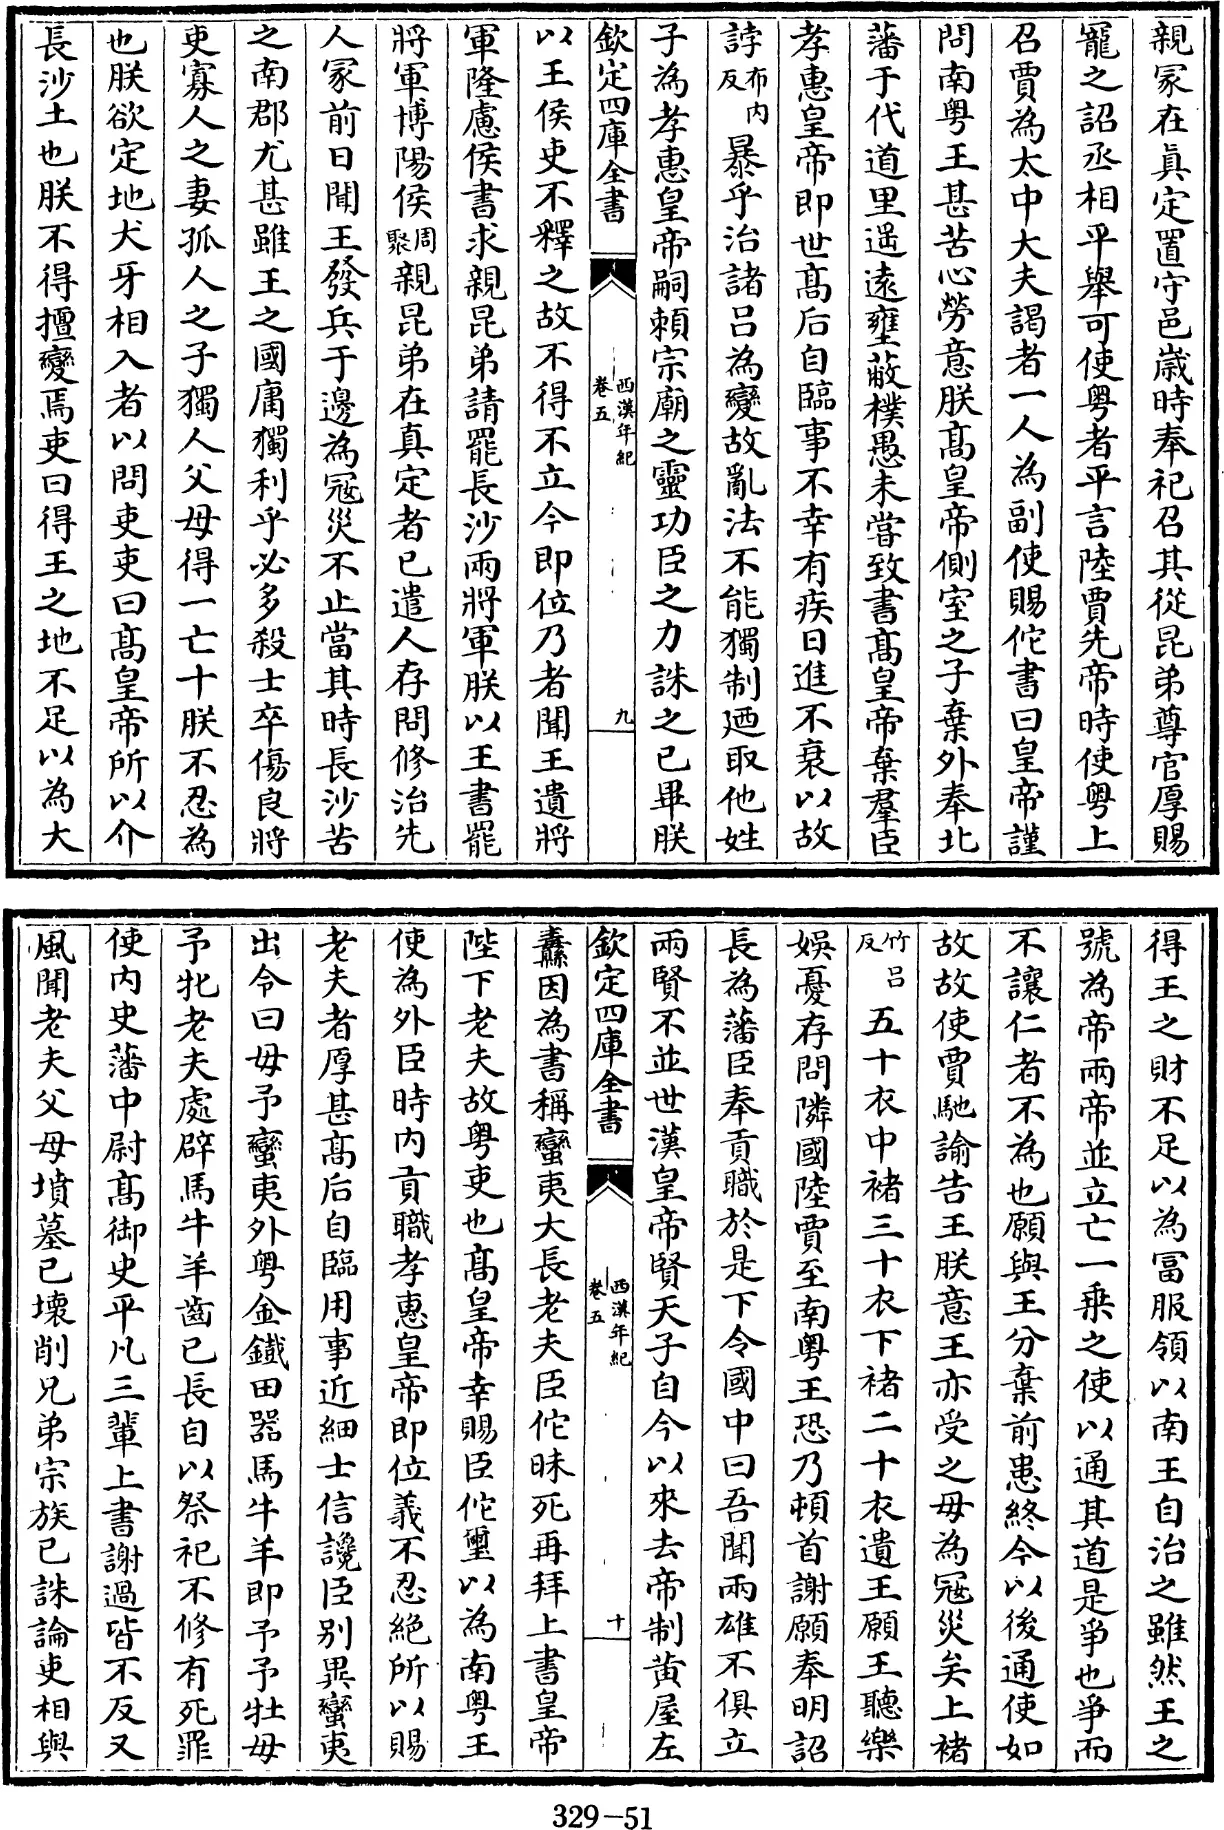 親冢在真定置守邑歲時奉祀召其從昆弟尊官厚賜
寵之詔丞相平舉可使粤者平言陸賈先帝時使粤上
召賈為太中大夫謁者一人為副使賜佗書曰皇帝謹
問南粤王甚苦心勞意朕髙皇帝側室之子棄外奉北
藩于代道里遥遠壅蔽樸愚未嘗致書髙皇帝棄羣臣
孝惠皇帝即世髙后自臨事不幸有疾日進不衰以故
誖布内反暴乎治諸呂為變故亂法不能獨制廼取他姓
子為孝惠皇帝嗣頼宗廟之靈功臣之力誅之已畢朕
欽定四庫全書 西漢年紀 卷五 九
以王侯吏不釋之故不得不立今即位乃者聞王遺將
軍隆慮侯書求親昆弟請罷長沙兩將軍朕以王書罷
將軍博陽侯周聚親昆弟在真定者已遣人存問修治先
人冢前日聞王發兵于邊為冦災不止當其時長沙苦
之南郡尤甚雖王之國庸獨利乎必多殺士卒傷良將
吏寡人之妻孤人之子獨人父母得一亡十朕不忍為
也朕欲定地犬牙相入者以問吏吏曰髙皇帝所以介
長沙土也朕不得擅變焉吏曰得王之地不足以為大
得王之財不足以為冨服領以南王自治之雖然王之
號為帝兩帝並立亡一乘之使以通其道是爭也爭而
不讓仁者不為也願與王分棄前患終今以後通使如
故故使賈馳諭告王朕意王亦受之毋為冦災矣上褚
竹呂反五十衣中褚三十衣下褚二十衣遺王願王聽樂
娛憂存問隣國陸賈至南粤王恐乃頓首謝願奉明詔
長為藩臣奉貢職於是下令國中曰吾聞兩雄不俱立
兩賢不並世漢皇帝賢天子自今以來去帝制黄屋左
欽定四庫全書 西漢年紀 卷五 十
纛因為書稱蠻夷大長老夫臣佗昧死再拜上書皇帝
陛下老夫故粤吏也髙皇帝幸賜臣佗璽以為南粤王
使為外臣時内貢職孝惠皇帝即位義不忍絶所以賜
老夫者厚甚髙后自臨用事近細士信讒臣别異蠻夷
出令曰毋予蠻夷外粤金鐵田器馬牛羊即予予牡毋
予牝老夫處辟馬牛羊齒已長自以祭祀不修有死罪
使内史藩中尉髙御史平凡三輩上書謝過皆不反又
風聞老夫父母墳墓已壞削兄弟宗族已誅論吏相與
329-51